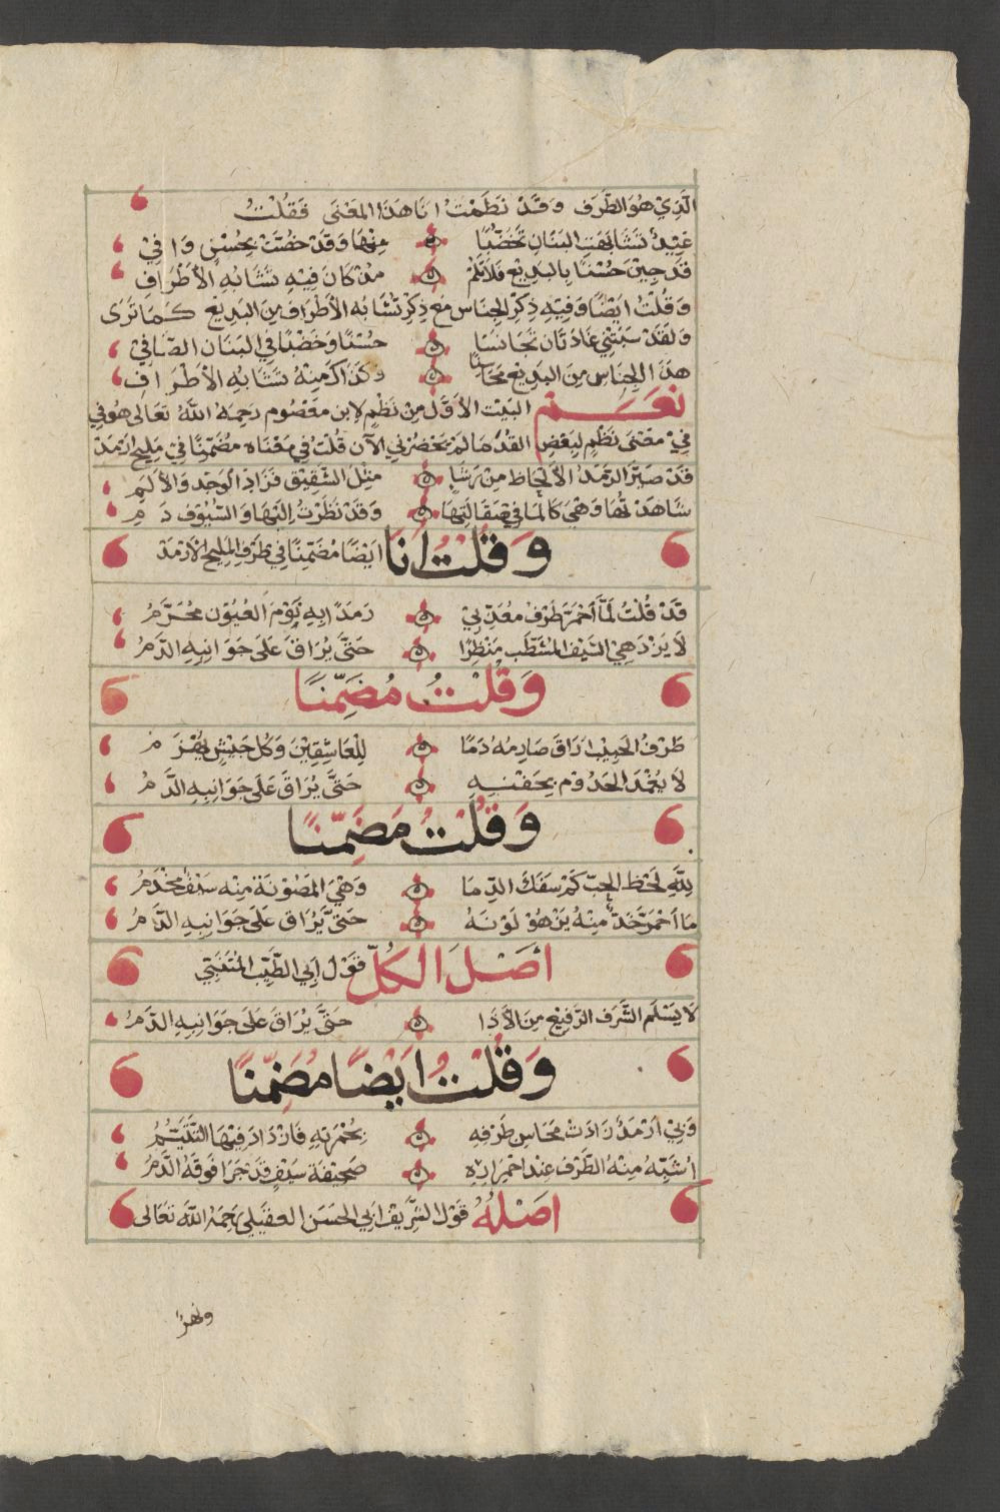 الَّذِيْ هُوَ الطَّرَف وَقَدْ نَظَمْتُ اَنَا هَذَا المَعْنَى فَقُلْتُ
غِيْدٌ تَشَابَهَتِ البَنَانِ تَخَضُّبًا مِنْهَا وَقَدْ خُصَّتْ بِحُسْنٍ وَافِيْ
قَدْ جِيْنَ حُسْنًا بِالبَدِيْعِ فَلَا تَلُمْ مَنْ كَانَ فِيْهِ تَشَابُهِ الأَطْرَافِ
وَقُلْتُ اَيْضًا وَفِيْهِ ذِكْرُ الجِنَاسِ مَعْ ذِكْرِ تَشَابُهِ الأَطْرَافِ مِنَ البَدِيْعِ كَمَا تَرَى
وَلَقَدْ سَبَتْنِي غَادَتَانِ تَجَانَسَا حُسْنًا وَخَضْبًا فِي البَنَانِ الصَّافِيْ
هَذَا الجِنَاسِ مِنَ البَدِيْعِ مَحَاسِنًا وَكَذَاكَ مِنْهُ تَشَابُهِ الأَطْرَافِ
نَعَمْ البَيْت الأَوَّل مِنْ نَظْمٍ لِابْنِ مَعْصُوم رَحِمَهُ اللهُ تَعَالَى هُوَ فِي
فِيْ مَعْنَى نَظْمٍ لِبَعْضِ القُدُمَا لَمْ يَحْضُرْنِي الآن قُلْتُ فِي مَعْنَاه مُضَمِّنًا فِيْ مَلِيْحٍ اَرْمَدْ
قَدْ صَيَّرَ الرَّمَدُ الأَلْحَاظَ مِنْ رَشَاءٍ مِثْلَ الشَّقِيْقِ فَزَادَ الوَجْد وَالأَلَمِ
شَاهَدْتُهَا وَهْيَ كَالمَا فِيْ صَقَالَتِهَا وَقَدْ نَظَرْتُ اِلَيْهَا وَالسُّيُوْف دَمِ
وَقُلْتُ اَنَا اَيْضًا مُضَمِّنًا فِي طَرَفِ المَلِيْحِ الأَرْمَدْ
قَدْ قُلْتُ لَمَّا اَحْمَرَّ طَرْفُ مُعَذِّبِيْ رَمَدًا بِهِ نَوْمُ العُيُوْنِ مُحَرَّمُ
لَا يَزْدَهِيْ السَّيْفُ المُشَطَّب مَنْظَرًا حَتَّى يُرَاقَ عَلَى جَوَانِبِهِ الدَّمُ
وَقُلْتُ مُضَمِّنًا
طَرْفُ الحَبِيْبِ اَرَاقَ صَارِمُهُ دَمًا لِلْعَاشِقِيْنَ وَكُلُّ جَيْشٍ يُهْزَمُ
لَا يُغْمَدُ المَخْذُوْمُ بِجَفْنِهِ حَتَّى يُرَاقَ عَلَى جَوَانِبِهِ الدَّمُ
وَقُلْتُ مُضَمِّنًا
لِلّهِ لَحْظ الحِبّ كَمْ سَفَكَ الدِّمَا وَهْيَ المَصُوْنَة مِنْهُ سَيْفٌ مِخْذَمُ
مَا اَحْمَرَّ خَدٌّ مِنْهُ يَزْهُوْ لَوْنَهُ حَتَّى يُرَاقَ عَلَى جَوَانِبِهِ الدَّمُ
اَصْلَ الكُلّ قَوْل اَبِي الطَّيِّب المُتَنَبِّي
لَا يَسْلَم الشَّرَف الرَّفِيْع مِنَ الأَذَا حَتَّى يُرَاقَ عَلَى جَوَانِبِهِ الدَّمُ
وَقُلْتُ اَيْضًا مُضَمِّنًا
وَبِيْ اَرْمَدٌ زَادَتْ مَحَاسِنُ طَرْفِهِ بِحُمْرَتِهِ فَازْدَادَ فِيْهَا التَّتَيُّمُ
اُشَبِّهُ مِنْهُ الطَّرْف عِنْدَ احْمِرَارِهِ صَحِيْفَة سَيْفٍ قَدْ جَرَا فَوْقَهُ الدَّمُ
اَصْلُهُ قَوْل الشَّرِيْف اَبِي الحَسَن العَقِيْلِي رَحِمَهُ اللّهُ تَعَالَى